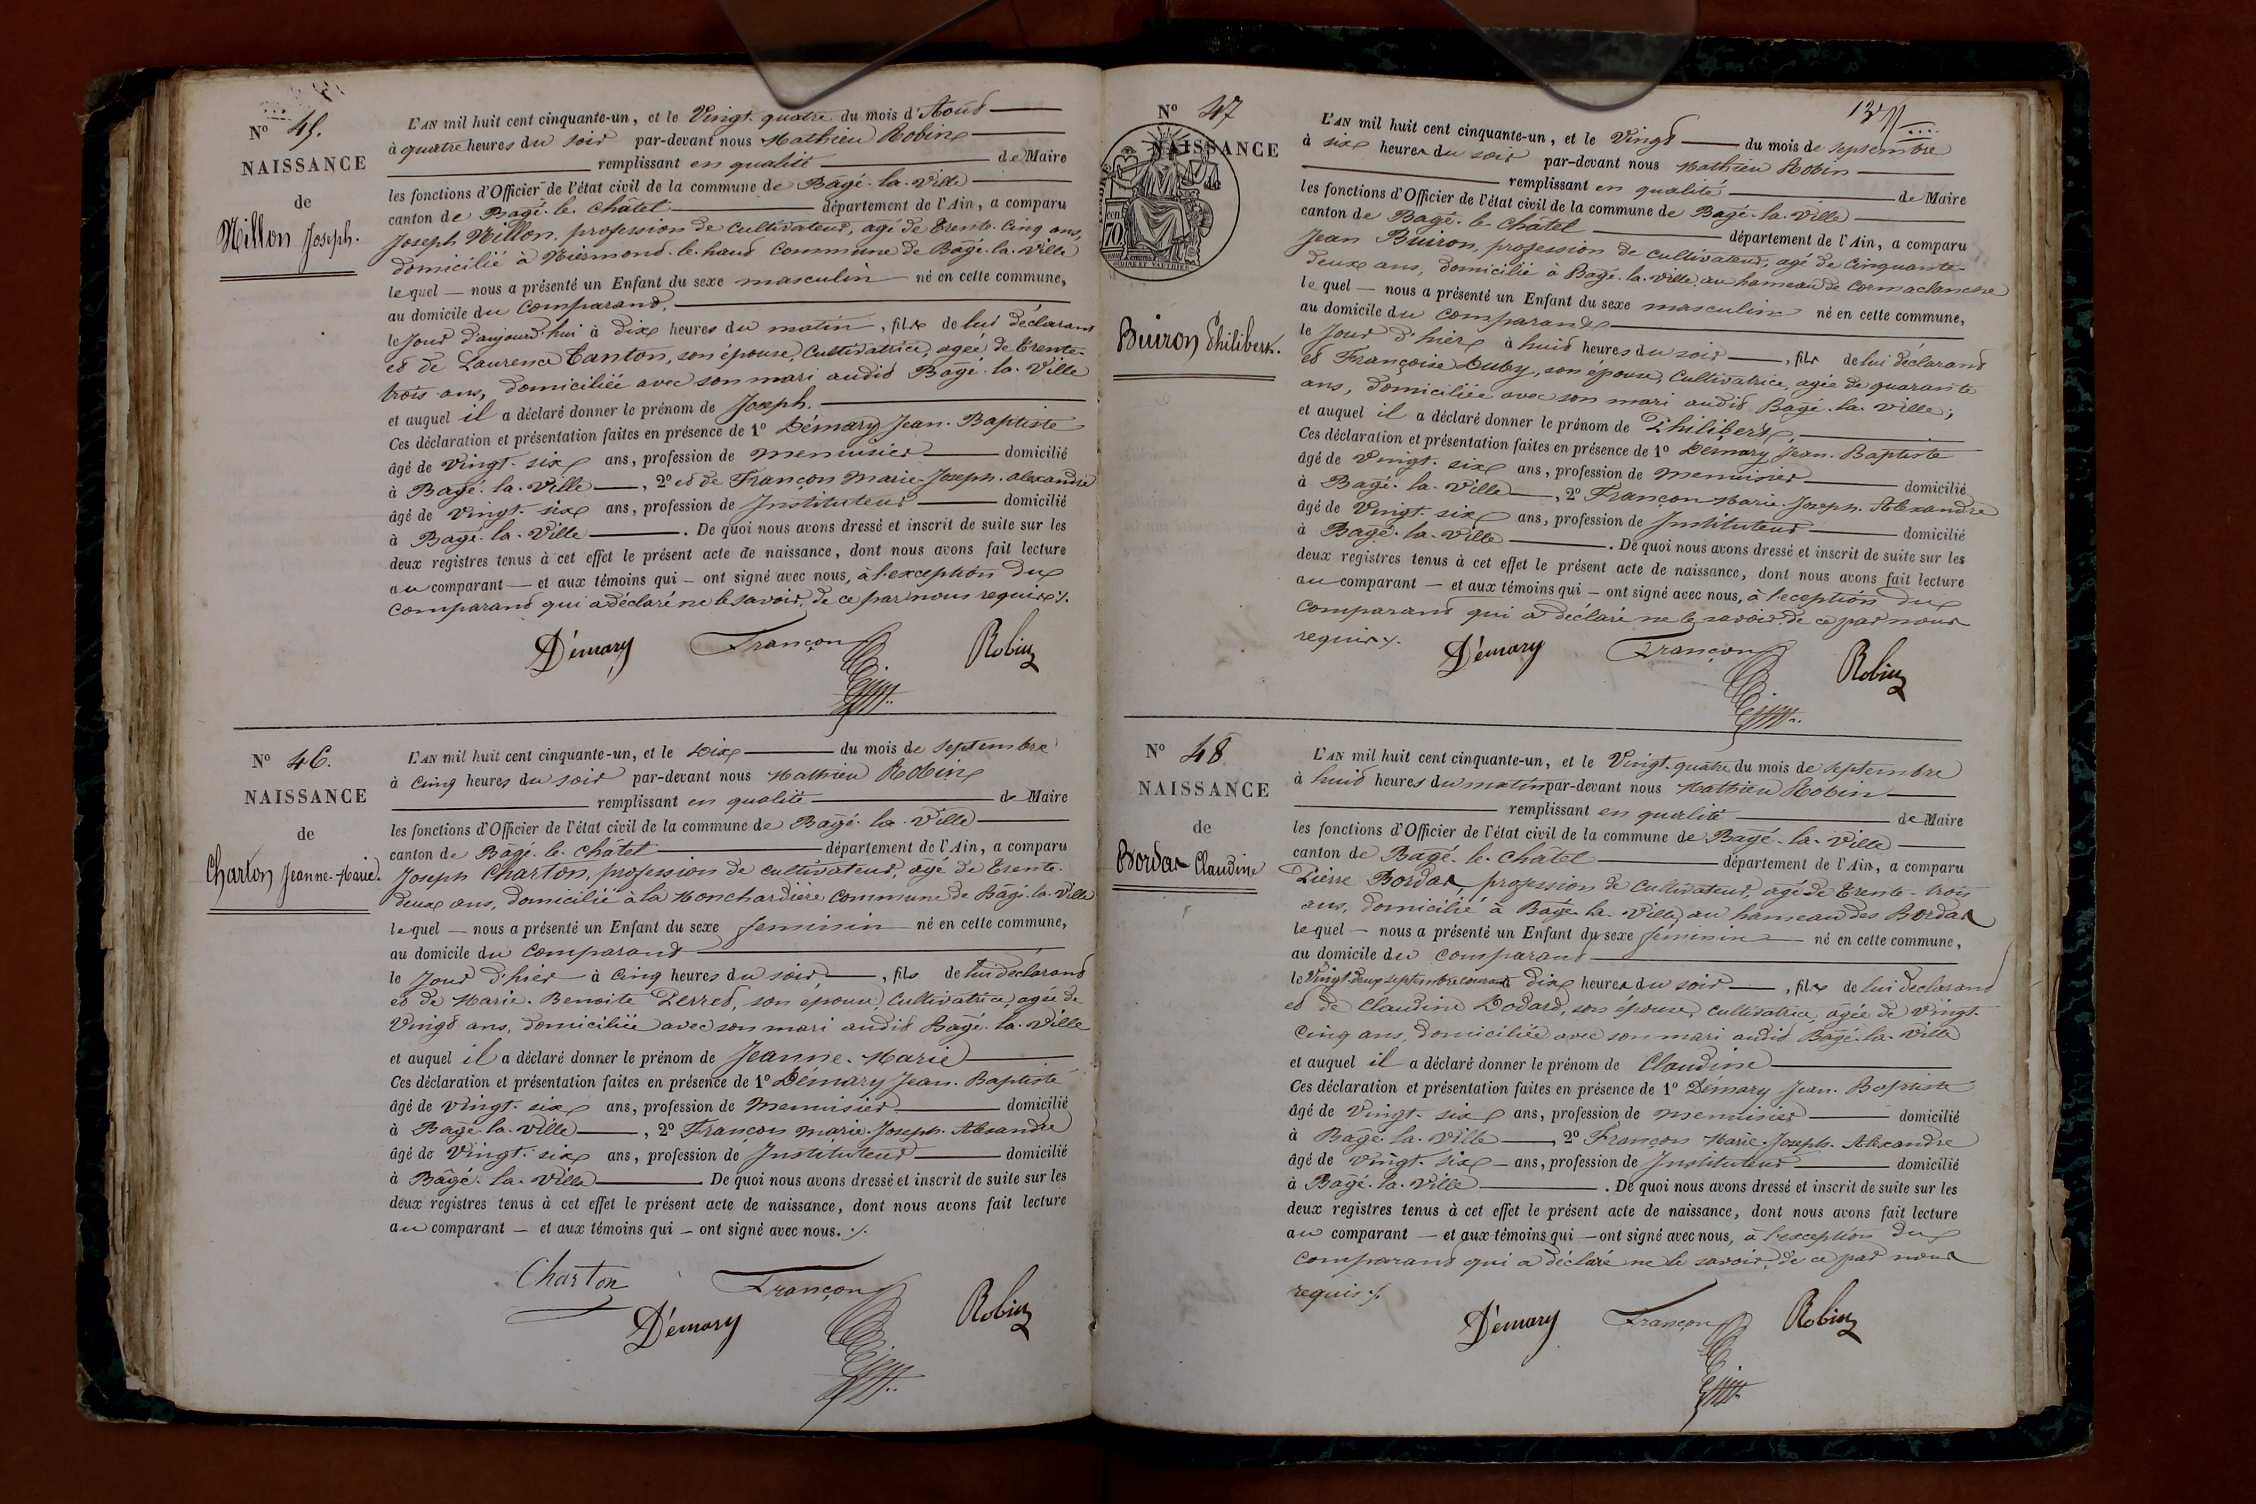 N° 45.
NAISSANCE
de
Millon Joseph.
L'AN mil huit cent cinquante-un, et le Vingt. quatre du mois d'Août
à quatre heures du soir par-devant nous Mathieu Robin
remplissant en qualité de Maire
les fonctions d'Officier de l'état civil de la commune de Bagé. la. Ville
canton de Bagé. le. Châtel département de l'Ain, a comparu
Joseph Millon, profession de Cultivateur, agé de Trente. Cinq ans,
domicilié à Miermont. le. haut Commune de Bagé. la. Ville
lequel — nous a présenté un Enfant du sexe masculin né en cette commune,
au domicile du Comparant,
le Jour d'aujourd'hui à dix heures du matin, fils de lui déclarant
et de Laurence Tanton, son épouse, Cultivatrice, agée de Trente-
trois ans, domiciliée avec son mari audit Bagé. la. Ville
et auquel il a déclaré donner le prénom de Joseph.
Ces déclaration et présentation faites en présence de 1° Démary Jean. Baptiste
âgé de Vingt. six ans, profession de menuisier domicilié
à Bagé. la. Ville, 2° et de Françon Marie. Joseph. alexandre
âgé de Vingt. six ans, profession de Instituteur domicilié
à Bagé. la. Ville. De quoi nous avons dressé et inscrit de suite sur les
deux registres tenus à cet effet le présent acte de naissance, dont nous avons fait lecture
au comparant — et aux témoins qui — ont signé avec nous, à l'exception du
Comparant qui a déclaré ne le savoir, de ce par nous requis ./.
Démary Françon Robin
N° 46.
NAISSANCE
de
Charton Jeanne-Marie.
L'AN mil huit cent cinquante-un, et le Dix du mois de septembre
à Cinq heures du soir par-devant nous Mathieu Robin
remplissant en qualité de Maire
les fonctions d'Officier de l'état civil de la commune de Bagé. la. Ville
canton de Bagé. le. Chatel département de l'Ain, a comparu
Joseph Charton, profession de cultivateur, agé de Trente.
deux ans, domicilié à la Monchardière Commune de Bagé. la. Ville
lequel — nous a présenté un Enfant du sexe feminin né en cette commune,
au domicile du Comparant
le Jour d'hier à Cinq heures du soir, fils de lui déclarant
et de Marie. Benoite Perret, son épouse, Cultivatrice, agée de
Vingt ans, domiciliée avec son mari audit Bagé. la. Ville
et auquel il a déclaré donner le prénom de Jeanne. Marie
Ces déclaration et présentation faites en présence de 1° Démary Jean. Baptiste
âgé de vingt. six ans, profession de Menuisier domicilié
à Bagé. la. Ville, 2° Françon Marie. Joseph. Alexandre
âgé de Vingt. six ans, profession de Instituteur domicilié
à Bâgé. la. Ville. De quoi nous avons dressé et inscrit de suite sur les
deux registres tenus à cet effet le présent acte de naissance, dont nous avons fait lecture
au comparant — et aux témoins qui — ont signé avec nous. ./.
Charton Françon
Démary Robin
N° 47
NAISSANCE
Buiron Philibert.
L'AN mil huit cent cinquante-un, et le Vingt du mois de septembre
à six heures du soir par-devant nous Mathieu Robin
remplissant en qualité de Maire
les fonctions d'Officier de l'état civil de la commune de Bagé. la. Ville
canton de Bagé. le. Châtel département de l'Ain, a comparu
Jean Buiron, profession de cultivateur, agé de Cinquante-
deux ans, domicilié à Bagé. la. Ville, au hameau de Cormaclanche
lequel — nous a présenté un Enfant du sexe masculin né en cette commune,
au domicile du Comparant
le Jour d'hier à huit heures du soir, fils de lui déclarant
et Françoise Duby, son épouse, Cultivatrice, agée de quarante
ans, domiciliée avec son mari audit Bagé. la. Ville;
et auquel il a déclaré donner le prénom de Philibert,
Ces déclaration et présentation faites en présence de 1° Démary Jean. Baptiste
âgé de Vingt. six ans, profession de menuisier domicilié
à Bagé. la. Ville, 2° Françon Marie. Joseph. Alexandre
âgé de Vingt. six ans, profession de Instituteur domicilié
à Bagé. la. Ville. De quoi nous avons dressé et inscrit de suite sur les
deux registres tenus à cet effet le présent acte de naissance, dont nous avons fait lecture
au comparant — et aux témoins qui — ont signé avec nous, à l'eception du
Comparant qui a déclaré ne le savoir, de ce par nous
requis ./.
Démary Françon Robin
N° 48
NAISSANCE
de
Bordat Claudine
L'AN mil huit cent cinquante-un, et le Vingt. quatre du mois de septembre
à huit heures du matin par-devant nous Mathieu Robin
remplissant en qualité de Maire
les fonctions d'Officier de l'état civil de la commune de Bagé. la. Ville
canton de Bagé. le. Châtel département de l'Ain, a comparu
Pierre Bordat, profession de Cultivateur, agé de Trente. trois
ans, domicilié à Bagé. la. Ville, au hameau des Bordat
lequel — nous a présenté un Enfant du sexe féminin né en cette commune,
au domicile du Comparant
le Vingt. deux septembre courant dix heures du soir, fils de lui déclarant
et de Claudine Dodard, son épouse, cultivatrice, agée de Vingt.
Cinq ans, domiciliée avec son mari audit Bagé. la. Ville
et auquel il a déclaré donner le prénom de Claudine
Ces déclaration et présentation faites en présence de 1° Démary Jean. Baptiste
âgé de Vingt. six ans, profession de menuisier domicilié
à Bagé. la. Ville, 2° Françon Marie. Joseph. Alexandre
âgé de Vingt. six — ans, profession de Instituteur domicilié
à Bagé. la. Ville. De quoi nous avons dressé et inscrit de suite sur les
deux registres tenus à cet effet le présent acte de naissance, dont nous avons fait lecture
au comparant — et aux témoins qui — ont signé avec nous, à l'exception du
Comparant qui a déclaré ne le savoir, de ce par nous
requis ./.
Démary Françon Robin